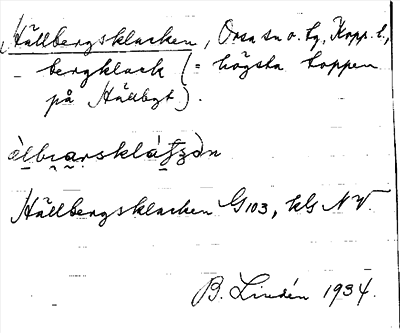 Hällbergsklacken, Orsa sn o. tg, Kopp. l.,
bergklack (= högsta toppen
på Hällbgt).
Hällbergsklacken G103, kls NV.
B. Lindén 1934.